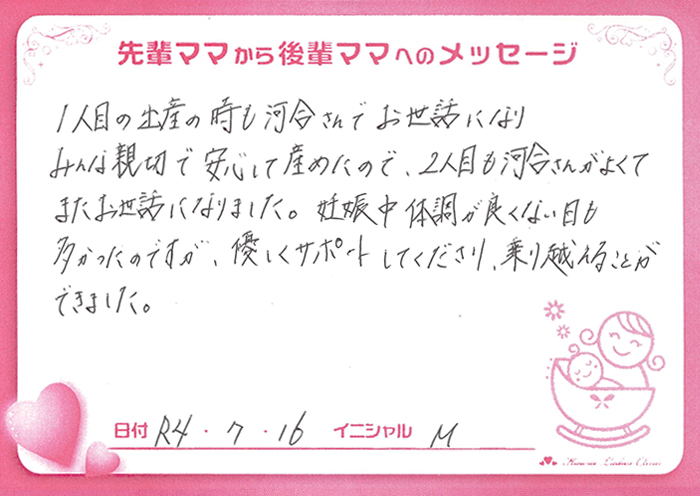 先輩ママから後輩ママへのメッセージ
1人目の出産の時も河合さんでお世話になり
みんな親切で安心して産めたので、2人目も河合さんがよくて
またお世話になりました。妊娠中体調が良くない日も
多かったのですが、優しくサポートしてくださり、乗り越えることが
できました。
日付 R4・7・16 イニシャル M